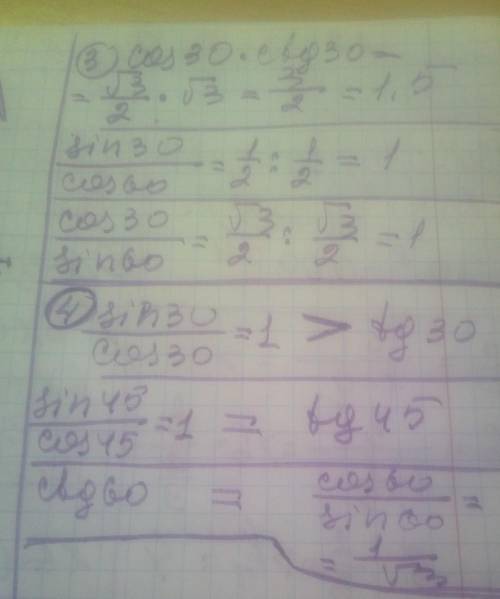 ③ cos30 · ctg30 =
= √3/2 · √3 = 3/2 = 1.5
sin30/cos60 = 1/2 : 1/2 = 1
cos30/sin60 = √3/2 : √3/2 = 1
④ sin30/cos30 = 1 > tg30
sin45/cos45 = 1 = tg45
ctg60 = cos60/sin60 =
= 1/√3